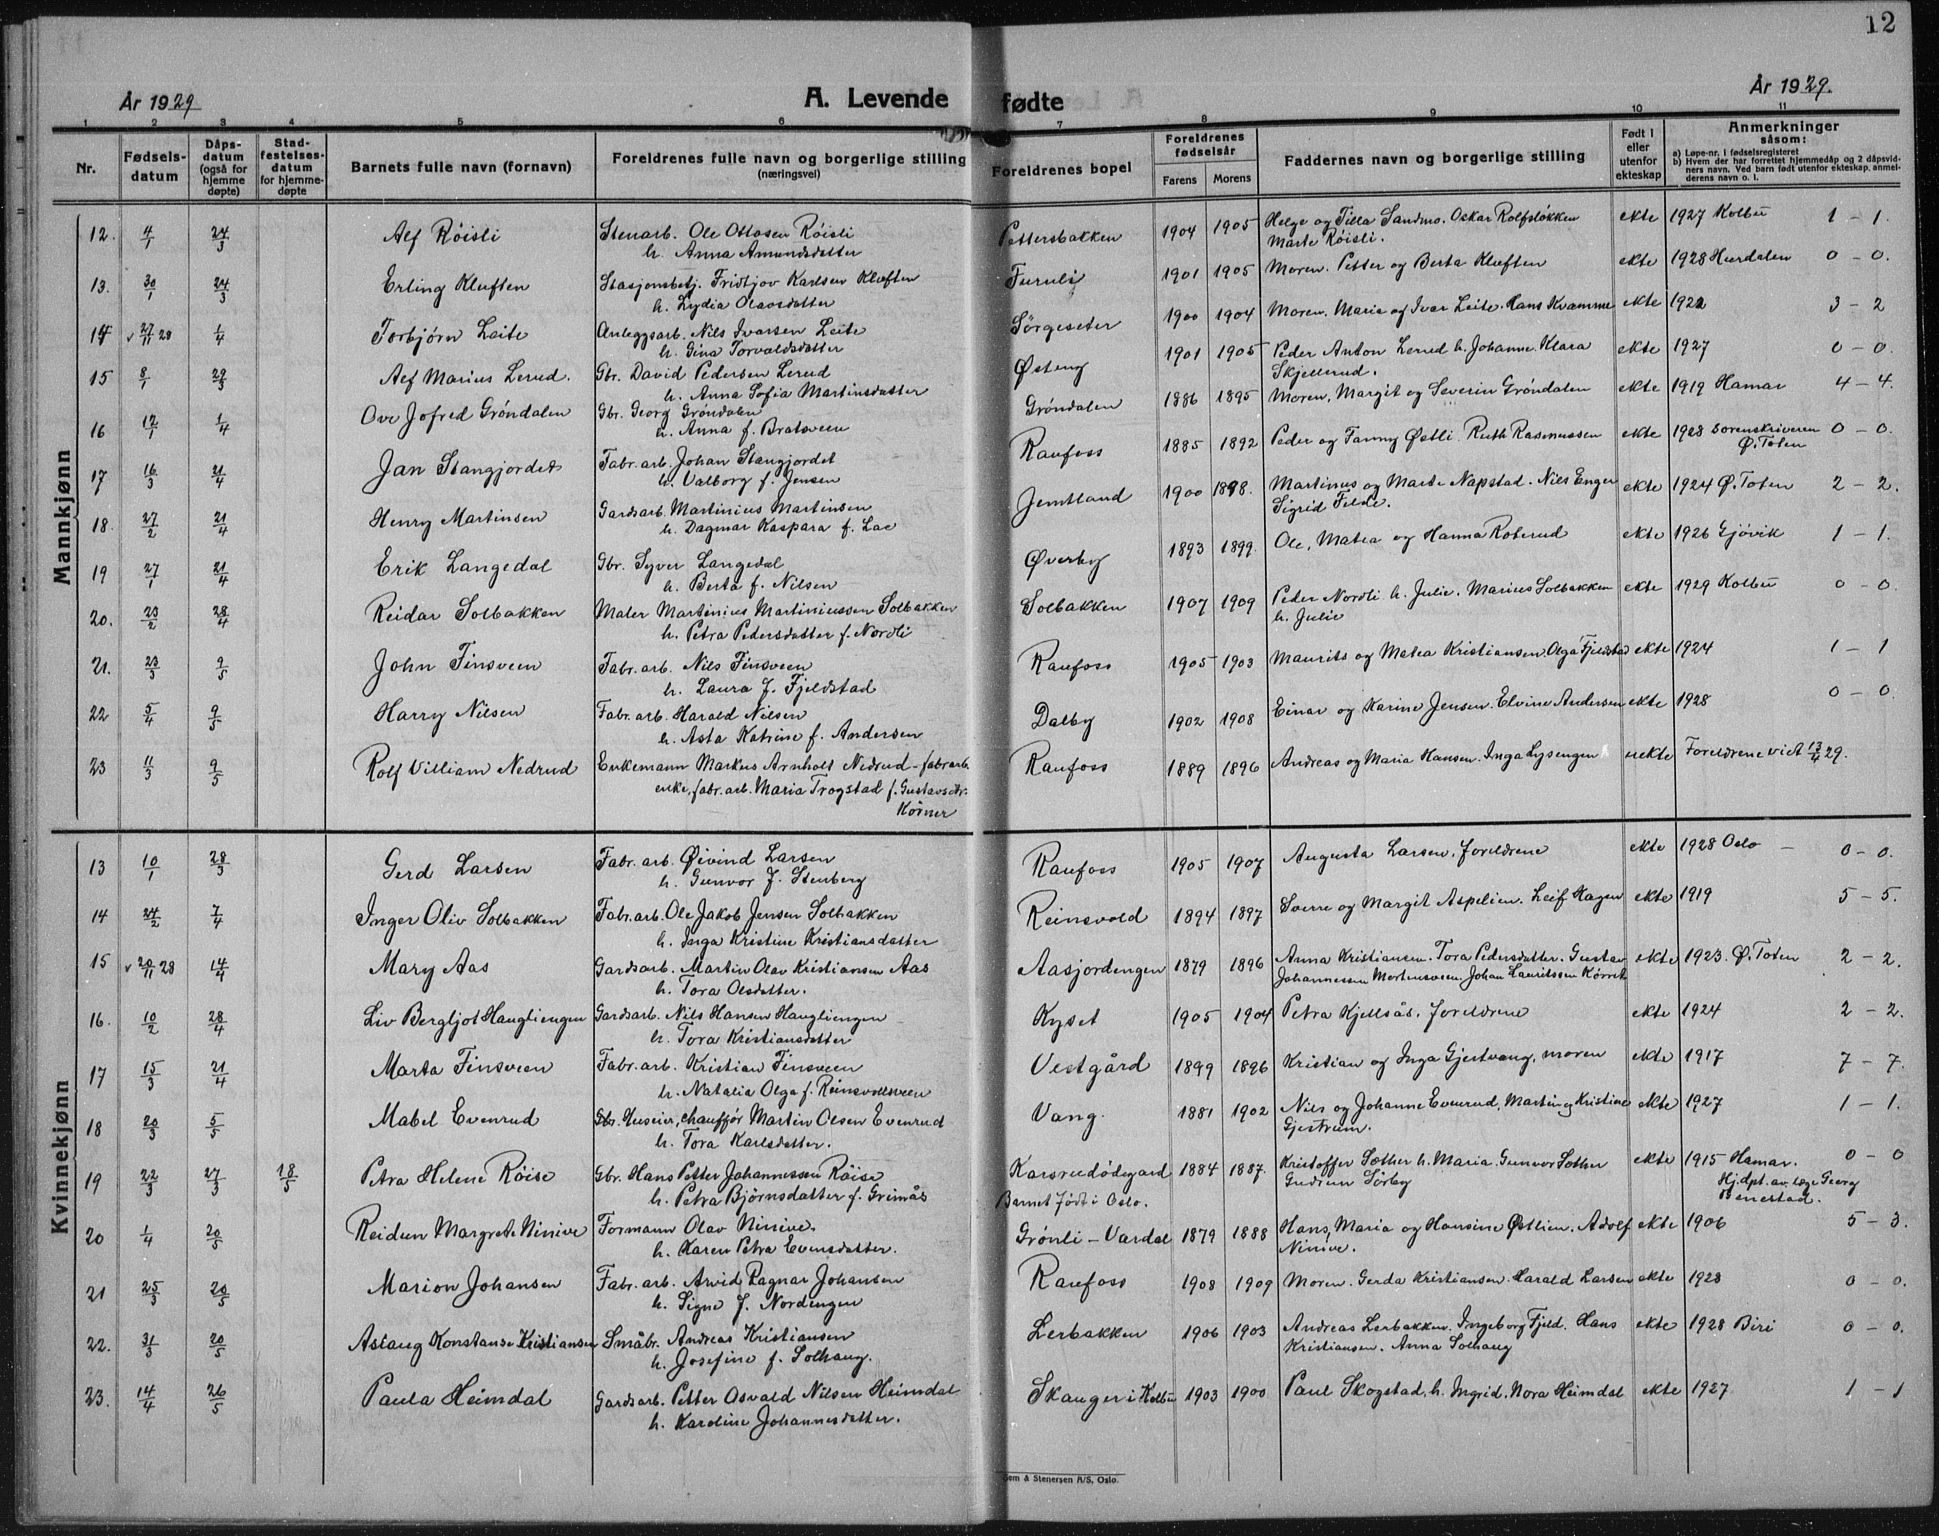 12
År 1929 A. Levende fødte År 1929.
1 2 3 4 5 6 7 8 9 10 11
Nr. Fødsels-datum Dåps-datum (også for hjemme døpte) Stad-festelses-datum for hjemme-døpte Barnets fulle navn (fornavn) Foreldrenes fulle navn og borgerlige stilling (næringsvei) Foreldrenes bopel Foreldrenes fødselsår Farens Morens Faddernes navn og borgerlige stilling Født i eller utenfor ekteskap Anmerkninger såsom:
a) Løpe-nr. i fødselsregisteret
b) Hvem der har forrettet hjemmedåp og 2 dåpsvidners navn. Ved barn født utenfor ekteskap, anmelderens navn o. l.
Mannkjønn
12. 4/1 24/3 Alf Röisli Stenarb. Ole Ottosen Röisli Pettersbakken 1904 1905 Helge og Tilla Sandmo. Oskar Rolfsløkken ekte 1927 Kolbu 1 - 1.
h. Anna Amundsdatter Marte Röisli.
13. 30/1 24/3 Erling Kluften Stasjonsbetj. Fridtjov Karlsen Kluften Furuli 1901 1905 Moren. Petter og Berta Kluften ekte 1928 Hurdalen 0 - 0.
h. Lydia Olavsdatter
14 v 27/11 28 1/4 Torbjørn Leite Anleggsarb. Nils Ivarsen Leite Sörgeseter 1900 1904 Moren. Maria og Ivar Leite. Hans Kvamme ekte 1922 3 - 2
h. Gina Torvaldsdatter
15 8/1 29/3 Alf Marius Lerud. Gbr. David Pedersen Lerud Østeng 1901 1905 Peder Anton Lerud h. Johanne. Klara ekte 1927 0 - 0.
h. Anna Sofia Martinsdatter Skjellerud.
16 12/1 1/4 Ove Jofred Gröndalen Gbr. Georg Gröndalen Gröndalen 1886 1895 Moren, Margit og Severin Gröndalen ekte 1919 Hamar 4 - 4.
h. Anna f. Bratsveen
17 16/3 21/4 Jan Stangjordet Fabr. arb. Johan Stangjordet Raufoss 1885 1892 Peder og Fanny Østli. Ruth Rasmussen ekte 1928 Sorenskriveren 0 - 0.
h. Valborg f. Jensen Ø. Toten
18. 27/2 21/4 Henry Martinsen Gardsarb. Martinius Martinsen Jemtland 1900 1898. Martinus og Marte Napstad. Nils Enger ekte 1924 Ø. Toten 2 - 2.
h. Dagmar Kaspara f. Lae Sigrid Felde.
19 27/1 21/4 Erik Langedal Gbr. Syver Langedal Øverby 1893 1899. Ole, Matea og Hanna Roterud ekte 1926 Gjövik 1 - 1.
h. Berta f. Nilsen
20. 23/2 28/4 Reidar Solbakken Maler Martinius Martiniussen Solbakken Solbakken 1907 1909 Peder Nordli h. Julie. Marius Solbakken ekte 1929 Kolbu 0 - 0.
h. Petra Pedersdatter f. Nordli h. Julie
21. 23/3 9/5 John Finsveen Fabr. arb. Nils Finsveen Raufoss 1905 1903 Maurits og Matea Kristiansen. Olga Fjeldstad ekte 1924 1 - 1
h. Laura f. Fjeldstad
22 5/4 9/5 Harry Nilsen Fabr. arb. Harald Nilsen Dalby 1902 1908 Einar og Karine Jensen. Elvine Andersen ekte 1928 0 - 0.
h. Asta Katrine f. Andersen
23 11/3 9/5 Rolf Villiam Nedrud Enkemann Markus Arnholt Nedrud - fabr.arb. Raufoss 1889 1896 Andreas og Maria Hansen. Inga Lysengen uekte Foreldrene viet 13/4 29.
enke, fabr. arb. Maria Trogstad f. Gustavsdtr.
Körner
Kvinnekjønn
13 10/1 28/3 Gerd Larsen Fabr. arb. Øivind Larsen Raufoss 1905 1907 Augusta Larsen. foreldrene ekte 1928 Oslo - 0 - 0.
h. Gunvor f. Stenberg
14 24/2 7/4 Inger Oliv Solbakken Fabr. arb. Ole Jakob Jensen Solbakken Reinsvold 1894 1897 Sverre og Margit Aspelien. Leif Hagen ekte 1919 5 - 5.
h. Inga Kristine Kristiansdatter
15 v 20/11 28 14/4 Mary Aas Gardsarb. Martin Olav Kristiansen Aas Aasjordengen 1879 1896 Anna Kristiansen. Tora Pedersdatter. Gustav ekte 1923. Ø. Toten 2 - 2.
h. Tora Olsdatter. Johannessen Mortensveen. Johan Lauritssen Körret
16. 10/2 28/4 Liv Bergljot Haugliengen Gardsarb. Nils Hansen Haugliengen Kyset 1905 1904 Petra Kjellsås. foreldrene ekte 1924 2 - 2.
h. Tora Kristiansdatter
17 15/3 21/4 Marta Finsveen Fabr. arb. Kristian Finsveen Vestgård 1899 1896 Kristian og Inga Gjestvang, moren ekte 1917 7 - 7.
h. Natalia Olga f. Reinsvollsveen
18 20/3 5/5 Mabel Evenrud Gbr. Huseier, chauffør Martin Olsen Evenrud Vang. 1881 1902 Nils og Johanne Evenrud, Martin og Kristine ekte 1927 1 - 1.
h. Tora Karlsdatter. Gjestrum.
19 22/3 27/3 18/5 Petra Helene Röise Gbr. Hans Petter Johannessen Röise Karsrudödegard 1884 1887. Kristoffer Sæther h. Maria. Gunvor Sæther ekte 1915 Hamar. 0 - 0
h. Petra Björnsdatter f. Grimås Barnet født i Oslo. Gudrun Sörby Hj.dpt. av læge Georg
Benestad.
20 1/4 20/5 Reidun Margrete Ninive Formann Olav Ninive. Grönli - Vardal 1879 1888 Hans, Maria og Hansine Østlien. Adolf ekte 1906 5 - 3.
h. Karen Petra Evensdatter. Ninive.
21 25/3 20/5 Marion Johansen Fabr. arb. Arvid Ragnar Johansen Raufoss 1908 1909 Moren. Gerda Kristiansen. Harald Larsen ekte 1928 0 - 0.
h. Signe f. Nordengen
22. 31/3 20/5 Aslaug Konstanse Kristiansen Småbr. Andreas Kristiansen Lerbakken 1906 1903 Andreas Lerbakken. Ingeborg Fjeld. Hans ekte 1928 Biri 0 - 0.
h. Josefine f. Solhaug. Kristiansen. Anna Solhaug
23. 14/4 26/5 Paula Heimdal Gardsarb. Petter Osvald Nilsen Heimdal Skauger i Kolbu 1903 1900 Paul Skogstad, h. Ingrid. Nora Heimdal ekte 1927. 1 - 1
h. Karoline Johannesdatter.
Sem & Stenersen A/S, Oslo.